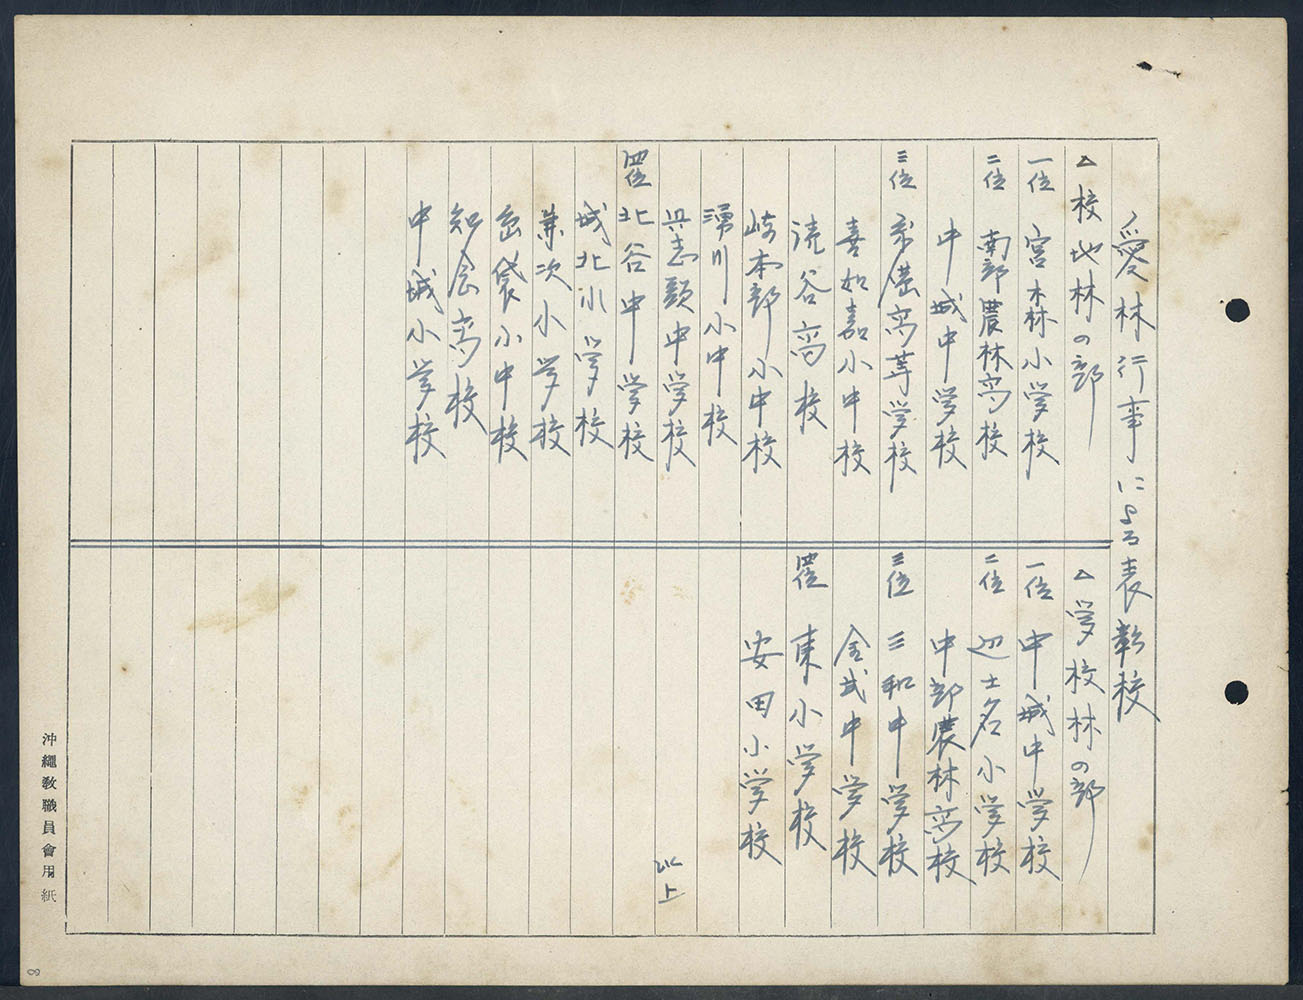 愛林行事による表彰校
△校地林の部
一位 宮森小学校
二位 南部農林高校
中城中学校
三位 糸満高等学校
喜如嘉小中校
読谷高校
崎本部小中校
湧川小中校
具志頭中学校
四位 北谷中学校
城北小学校
兼次小学校
島袋小中校
知念高校
中城小学校
△学校林の部
一位 中城中学校
二位 辺士名小学校
中部農林高校
三位 三和中学校
金武中学校
四位 東小学校
安田小学校
以上
沖繩教職員會用紙